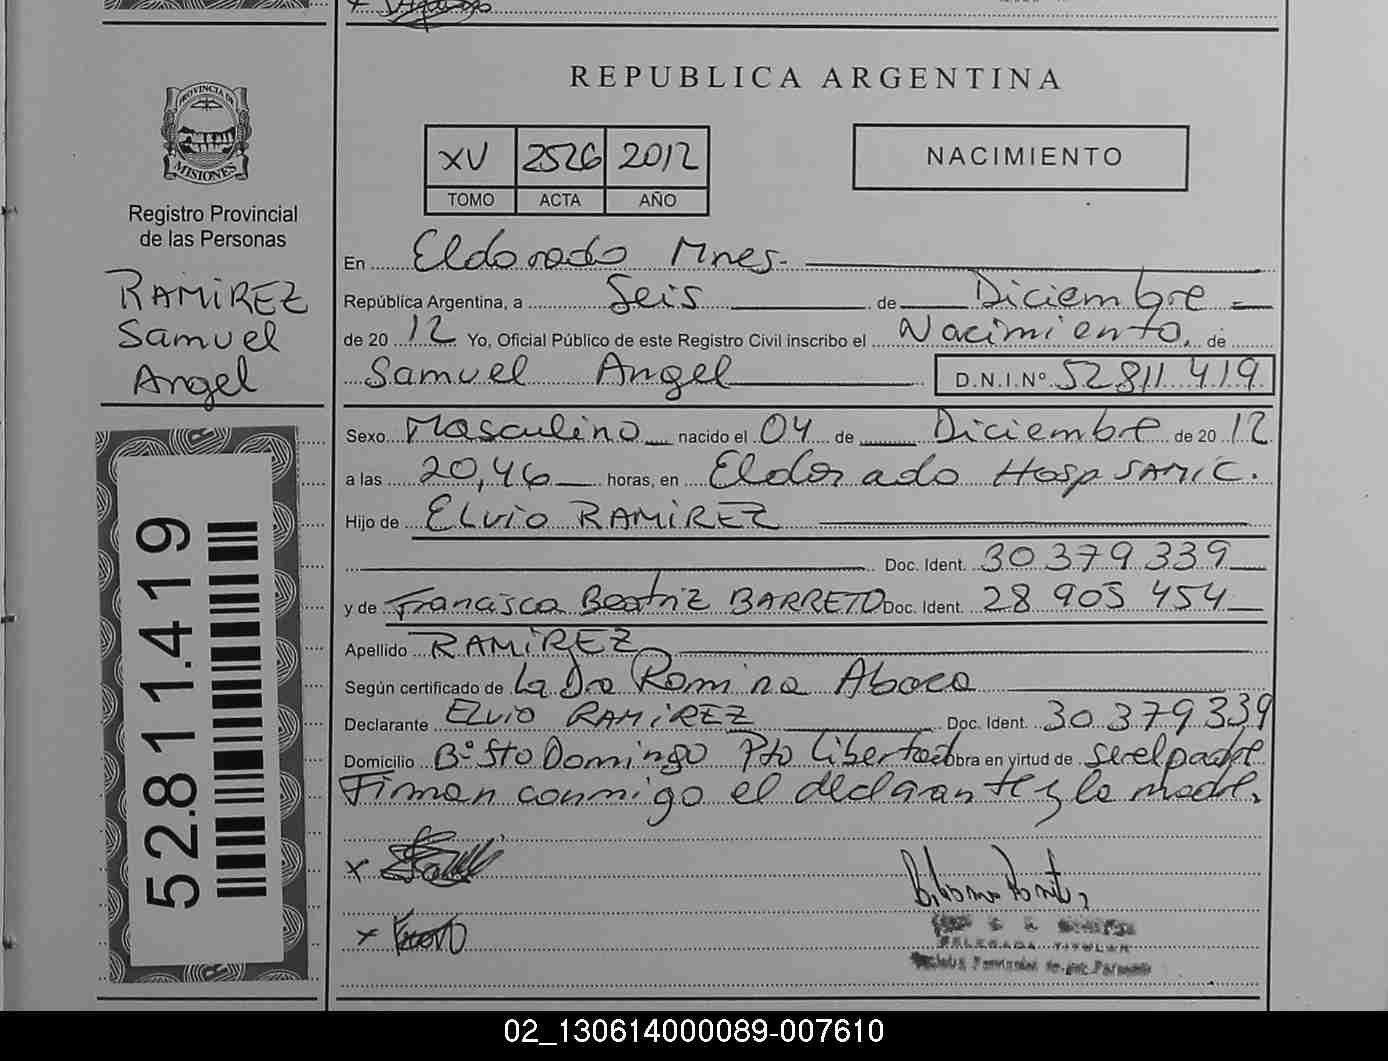 REPUBLICA ARGENTINA
PROVINCIA DE
MISIONES
Registro Provincial
de las Personas
RAMIREZ
Samuel
Angel
52.811.419
XV 2526 2012
TOMO ACTA AÑO
NACIMIENTO
En Eldorado Mnes.
República Argentina, a Seis de Diciembre
de 20 12 Yo, Oficial Público de este Registro Civil inscribo el Nacimiento, de
Samuel Angel D.N.I.Nº 52811419
Sexo Masculino nacido el 04 de Diciembre de 20 12
a las 20,46 horas, en Eldorado Hosp SAMIC.
Hijo de ELVIO RAMIREZ
Doc. Ident. 30 379 339
y de Francisca Beatriz BARRETO Doc. Ident. 28 905 454
Apellido RAMIREZ
Según certificado de La Dra Romina
Declarante ELVIO RAMIREZ Doc. Ident. 30 379 339
Domicilio Bº Sto Domingo Pto Libertad obra en virtud de ser el padre
Firman conmigo el declarante y la madre.
x
x
DELEGADA TITULAR
02_130614000089-007610